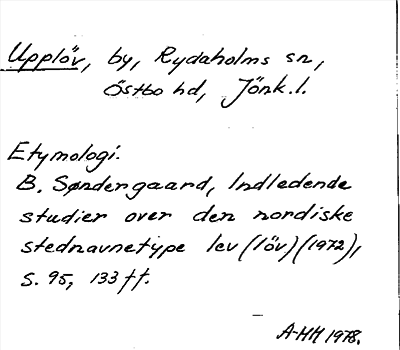 Upplöv, by, Rydaholms sn,
Östbo hd, Jönk.l.
Etymologi.
B. Søndergaard, Indledende
studier over den nordiske
stednavnetype lev (löv) (1972),
S. 95, 133 ff.
A-HH 1978.